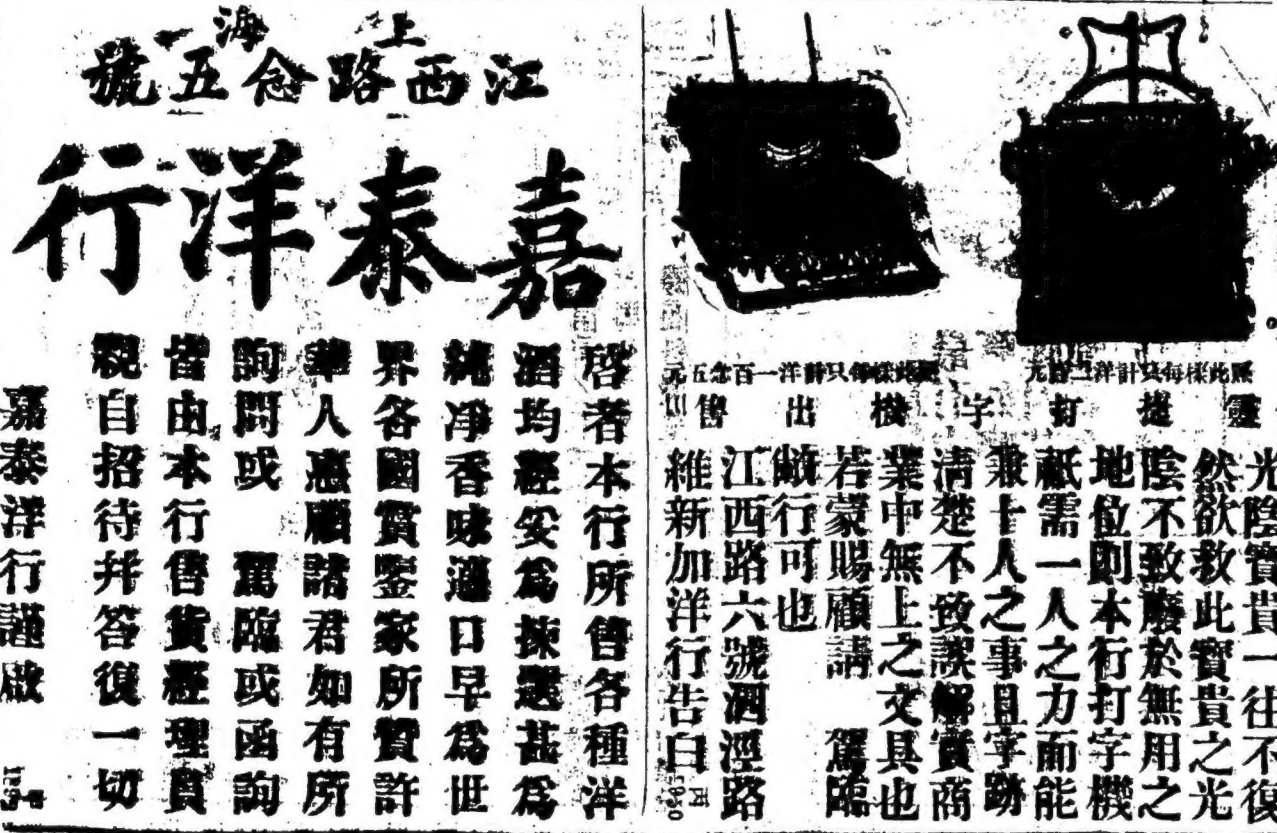 照此樣每只計洋二百元
照此樣每只計洋一百念五元
靈捷打字機出售
光陰寶貴一往不復
然欲救此寶貴之光
陰不致廢於無用之
地位則本行打字機
祇需一人之力而能
兼十人之事且字跡
清楚不致誤解實商
業中無上之文具也
若蒙賜顧請　駕臨
敝行可也
江西路六號泗涇路
維新加洋行告白
上海
江西路念五號
嘉泰洋行
啓者本行所售各種洋
酒均經妥爲揀選甚爲
純净香味適口早爲世
界各國賞鑒家所贊許
華人惠顧諸君如有所
詢問或　駕臨或函詢
皆由本行售貨經理員
親自招待并答復一切
嘉泰洋行謹啟